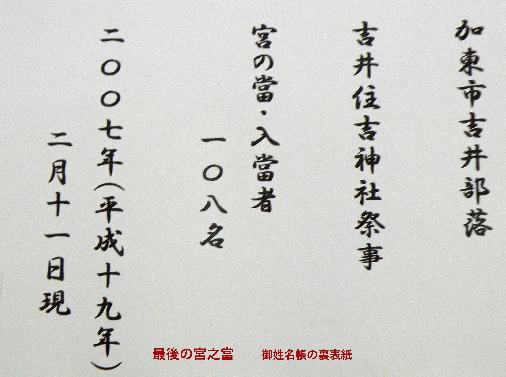 加東市吉井部落
吉井住吉神社祭事
宮の當・入當者
一〇八名
二〇〇七年(平成十九年)
二月十一日現
最後の宮之當 御姓名帳の裏表紙